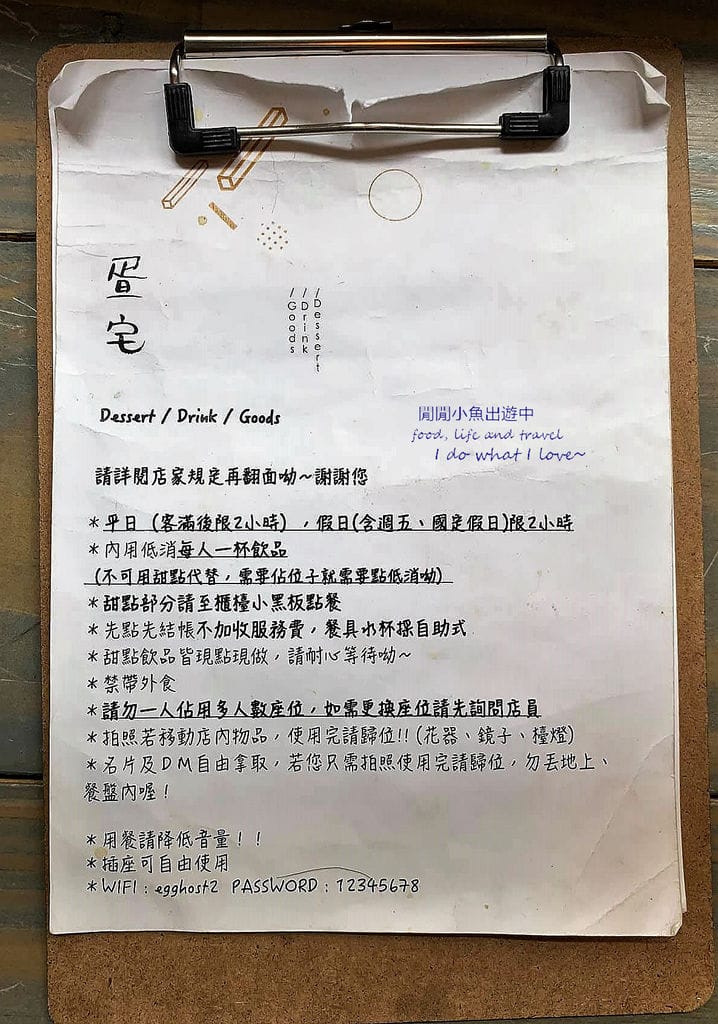 蛋宅
/Dessert
/Drink
/Goods
Dessert / Drink / Goods
閒閒小魚出遊中
food, life and travel
I do what I love~
請詳閱店家規定再翻面呦~謝謝您
*平日（客滿後限2小時），假日(含週五、國定假日)限2小時
*內用低消每人一杯飲品
（不可用甜點代替，需要佔位子就需要點低消呦）
*甜點部分請至櫃檯小黑板點餐
*先點先結帳不加收服務費，餐具水杯採自助式
*甜點飲品皆現點現做，請耐心等待呦~
*禁帶外食
*請勿一人佔用多人數座位，如需更換座位請先詢問店員
*拍照若移動店內物品，使用完請歸位!! (花器、鏡子、檯燈)
*名片及DM自由拿取，若您只需拍照使用完請歸位，勿丟地上、
餐盤內喔！
*用餐請降低音量！！
*插座可自由使用
*WIFI：egghost2 PASSWORD：12345678